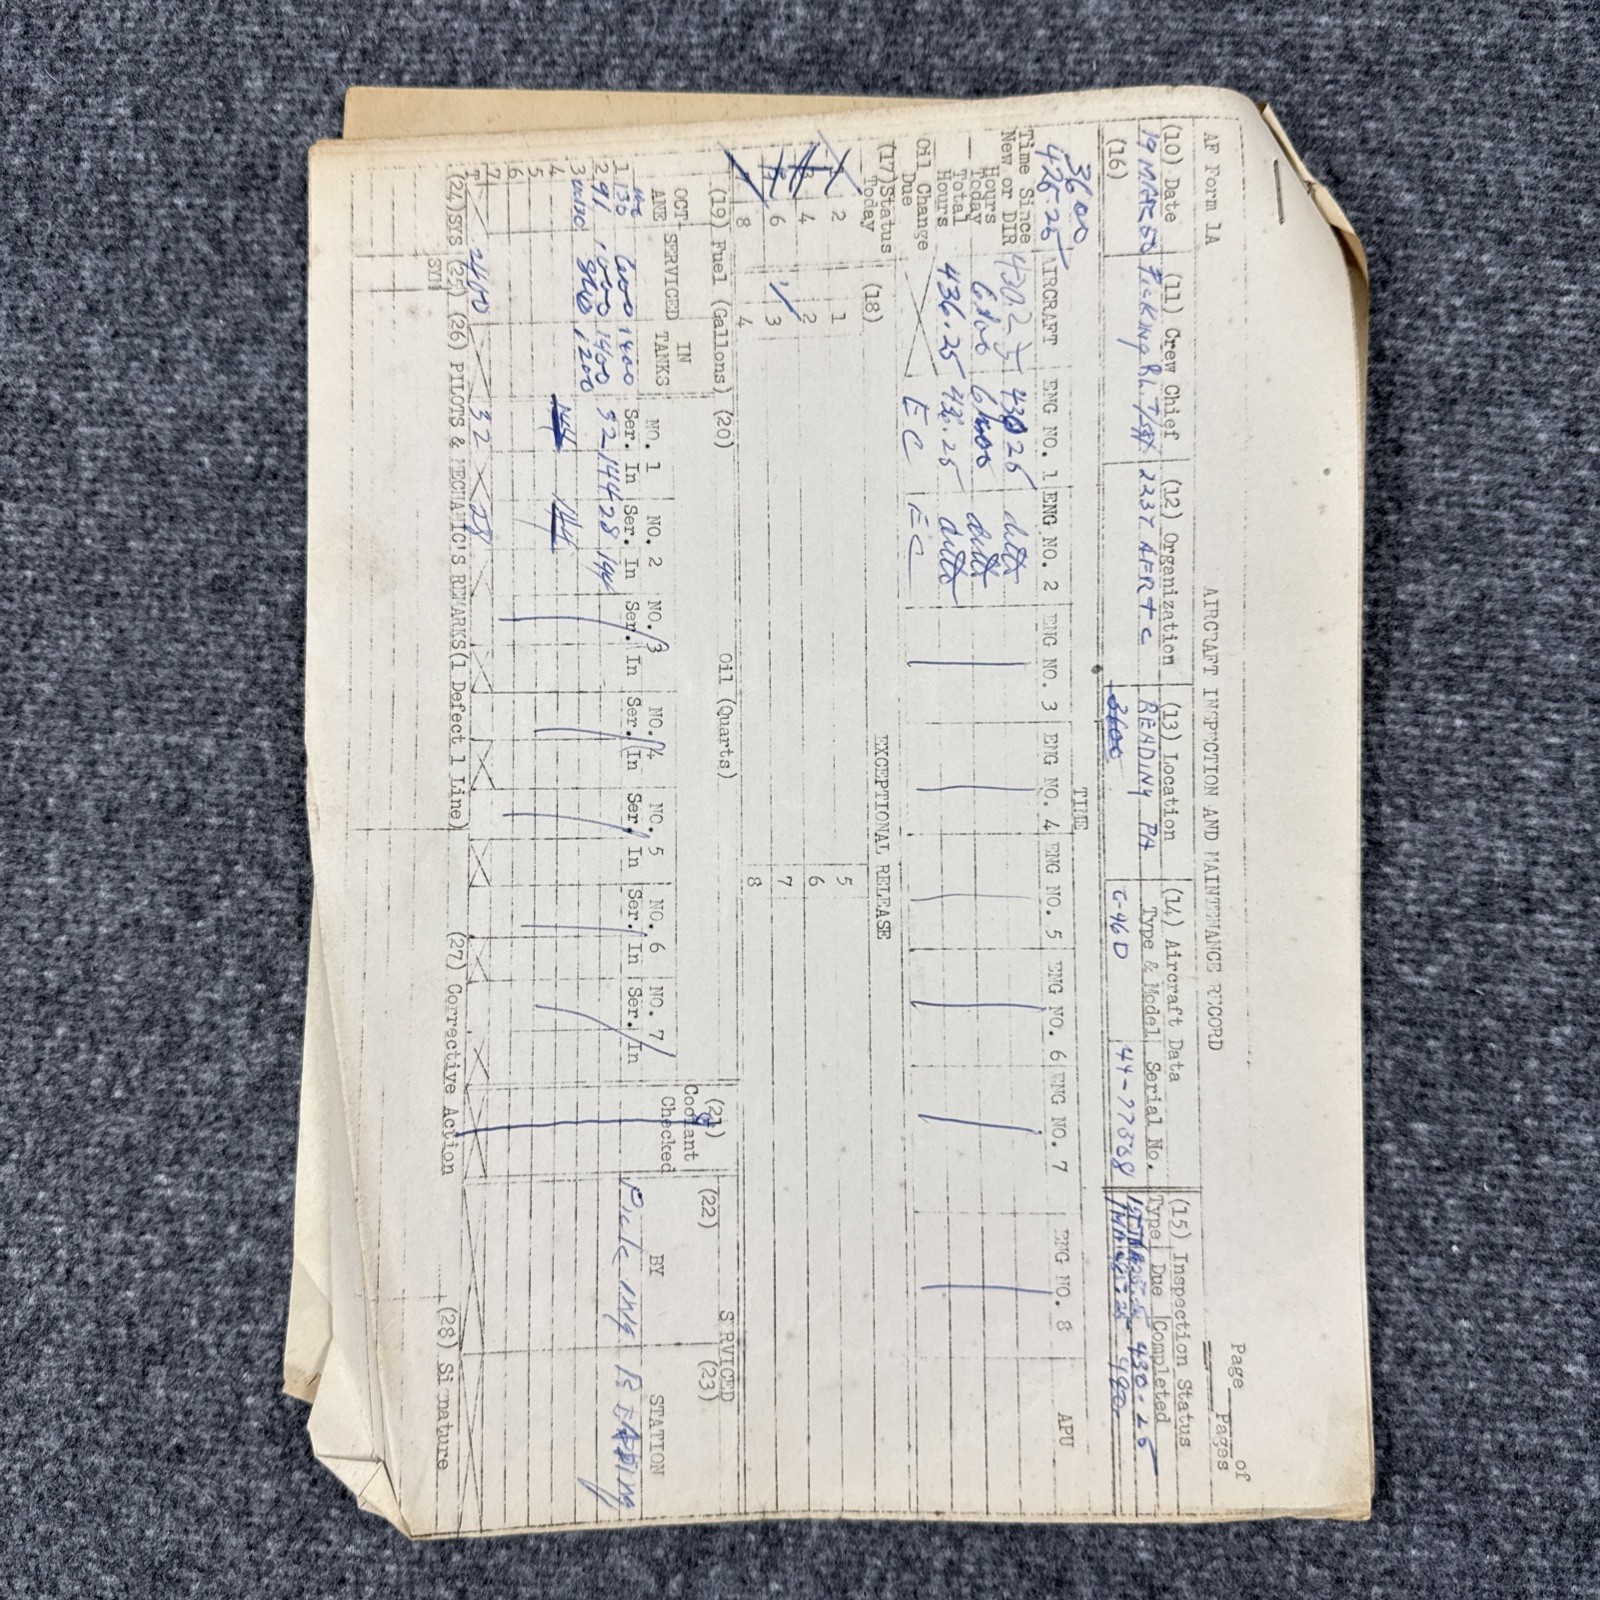 Page ___ of
___ Pages
AF Form 1A
AIRCRAFT INSPECTION AND MAINTENANCE RECORD
(10) Date (11) Crew Chief (12) Organization (13) Location (14) Aircraft Data (15) Inspection Status
Type & Model Serial No. Type Due Completed
19 MAR 50 Picking R.L. T/Sgt 2237 AFRTC READING PA 430.25
C-46D 44-77558
(16) 3600
TIME
3600
425.25
AIRCRAFT ENG NO. 1 ENG NO. 2 ENG NO. 3 ENG NO. 4 ENG NO. 5 ENG NO. 6 ENG NO. 7 ENG NO. 8 APU
Time Since
New or DIR 430.25 430 25 ditto
Hours
Today 6:00 6:00 ditto
Total
Hours 436.25 436.25 ditto
Oil Change
Due EC EC
EXCEPTIONAL RELEASE
(17) Status
Today (18)
2 1 5
4 2 6
6 3 7
8 4 8
(19) Fuel (Gallons) (20) Oil (Quarts) (21)
Coolant
Checked
SERVICED
(22) (23)
OCT
ANE SERVICED IN
TANKS NO. 1 NO. 2 NO. 3 NO. 4 NO. 5 NO. 6 NO. 7 BY STATION
Ser. In Ser. In Ser. In Ser. In Ser. In Ser. In Ser. In
1 100
130 600 1400 52 144 28 144 Picking READING
2 91 1000 1400
3 800 1200
4
5
6
7
T 2400 32 28
(24) SYS (25) SYM (26) PILOTS & MECHANIC'S REMARKS (1 Defect 1 Line) (27) Corrective Action (28) Signature